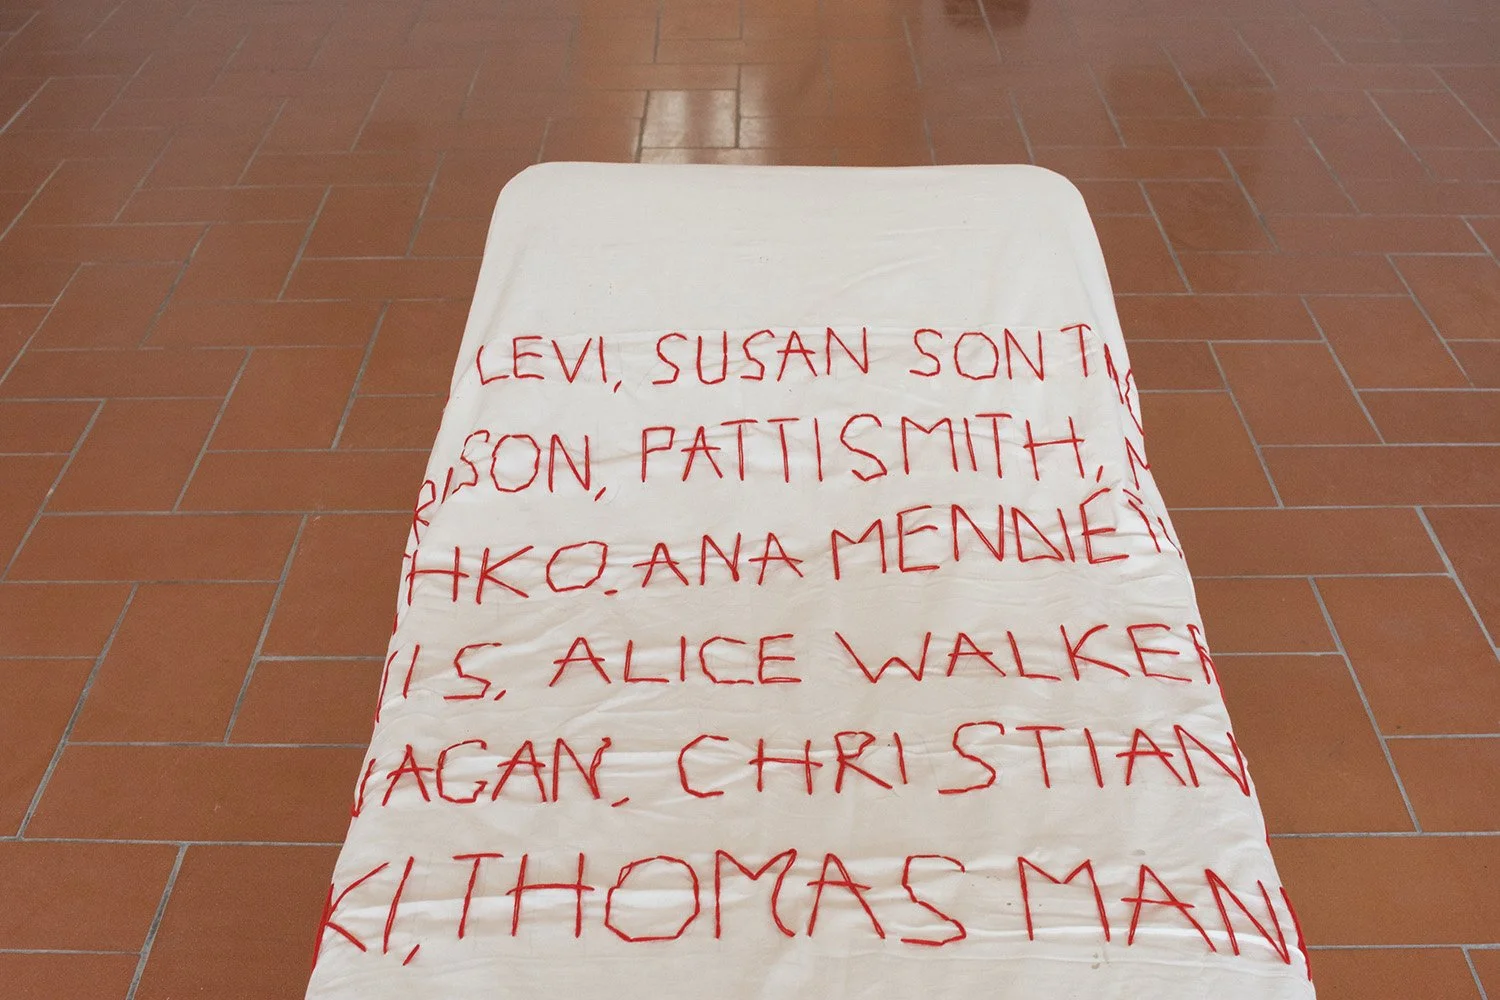 LEVI, SUSAN SONTAG
RISON, PATTI SMITH, M
HKO. ANA MENDIET
IS, ALICE WALKER
AGAN, CHRISTIAN
KI, THOMAS MANN